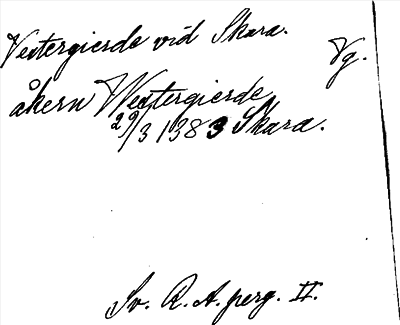 Vestergierde vid Skara.
Vg.
åkern Westergierde
29/3 1383 Skara.
Sv. R. A. perg. II.